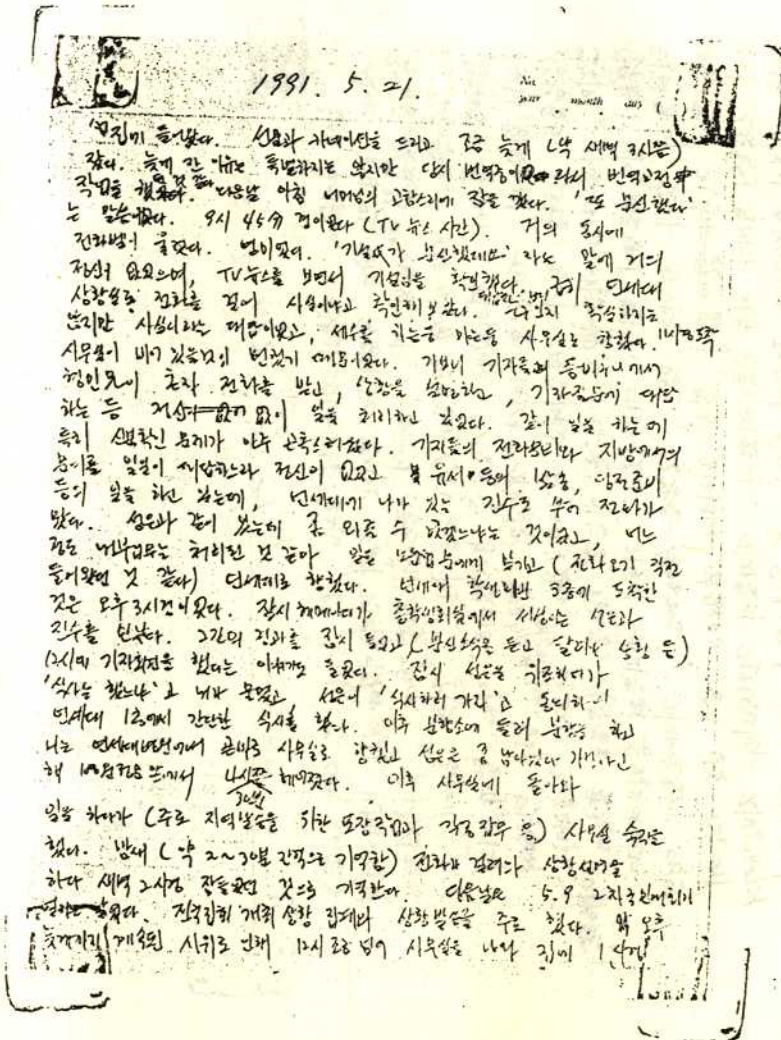 1991. 5. 21.
No.
year month day (
집에 들어왔다. 선물과 카네이션을 드리고 조금 늦게 (약 새벽 3시쯤)
잤다. 늦게 잔 이유는 특별하지는 않지만 당시 번역중이 번역교정
작업을 했다. 다음날 아침 어머님의 고함소리에 잠을 깼다. '또 분신했다'
는 말씀이었다. 9시 45分 경이었다 (TV 뉴스 시간). 거의 동시에
전화벨이 울렸다. '기설이가 분신했데요' 라는 말에 거의
정신이 없었으며, TV 뉴스를 보면서 기설임을 확인했다. 급히 연세대
상황실로 전화를 걸어 사실이냐고 확인해 보았다.
않지만 사실이라는 대답이었고, 세수를 하는둥 마는둥 사무실로 향했다.
사무실이 비어 있을것이 뻔했기 때문이었다. 가보니 기자들의 등비속에서
혼자 전화를 받고, 상황을 설명하고, 기자질문에 대답
하는 등 정신 없이 일을 처리하고 있었다. 같이 일을 하는데
특히 문제가 아주 곤혹스러웠다. 기자들의 전화문의와 지방에서의
문의를 일일이 대답하느라 정신이 없었고 유서 등의
등의 일을 하고 있는데, 연세대에 나가 있는 진수로 부터 전화가
왔다. 선은과 같이 있는데 좀 와줄 수 없겠느냐는 것이었고, 어느
정도 내부업무는 처리된 것 같아 일을 맡기고 (전화 오기 직전
들어왔던 것 같다) 연세대로 향했다. 연세대 학생회관 3층에 도착한
것은 오후 3시경이었다. 잠시 헤매다가 총학생회실에서 선은과
진수를 만났다. 그간의 경과를 잠시 듣고 (분신소식을 듣고 달려온 상황 등)
12시에 기자회견을 했다는 이야기도 들었다. 잠시 선은을 위로하다가
'식사는 했느냐'고 내가 물었고 선은이 '식사하러 가자'고
연세대 1층에서 간단한 식사를 했다. 이후 분향소에 들러 분향을 하고
나는 연세대 에서 곧바로 사무실로 향했고 선은은 좀 남아있다 가겠다고
해 앞에서 헤어졌다. 이후 사무실에 돌아와
일을 하다가 (주로 지역발송을 위한 포장작업과 각종잡무 등) 사무실 숙직을
했다. 밤새 (약 2~30분 간격으로 기억함) 전화가 걸려와 상황설명을
하다 새벽 2시경 잠들었던 것으로 기억한다. 다음날은 5.9 2차국민대회가
있는 날이었다. 전국집회 개최 상황 집계와 상황발송을 주로 했다. 오후
늦게까지 계속된 시위로 인해 12시 조금 넘어 사무실을 나와 집에 1시경